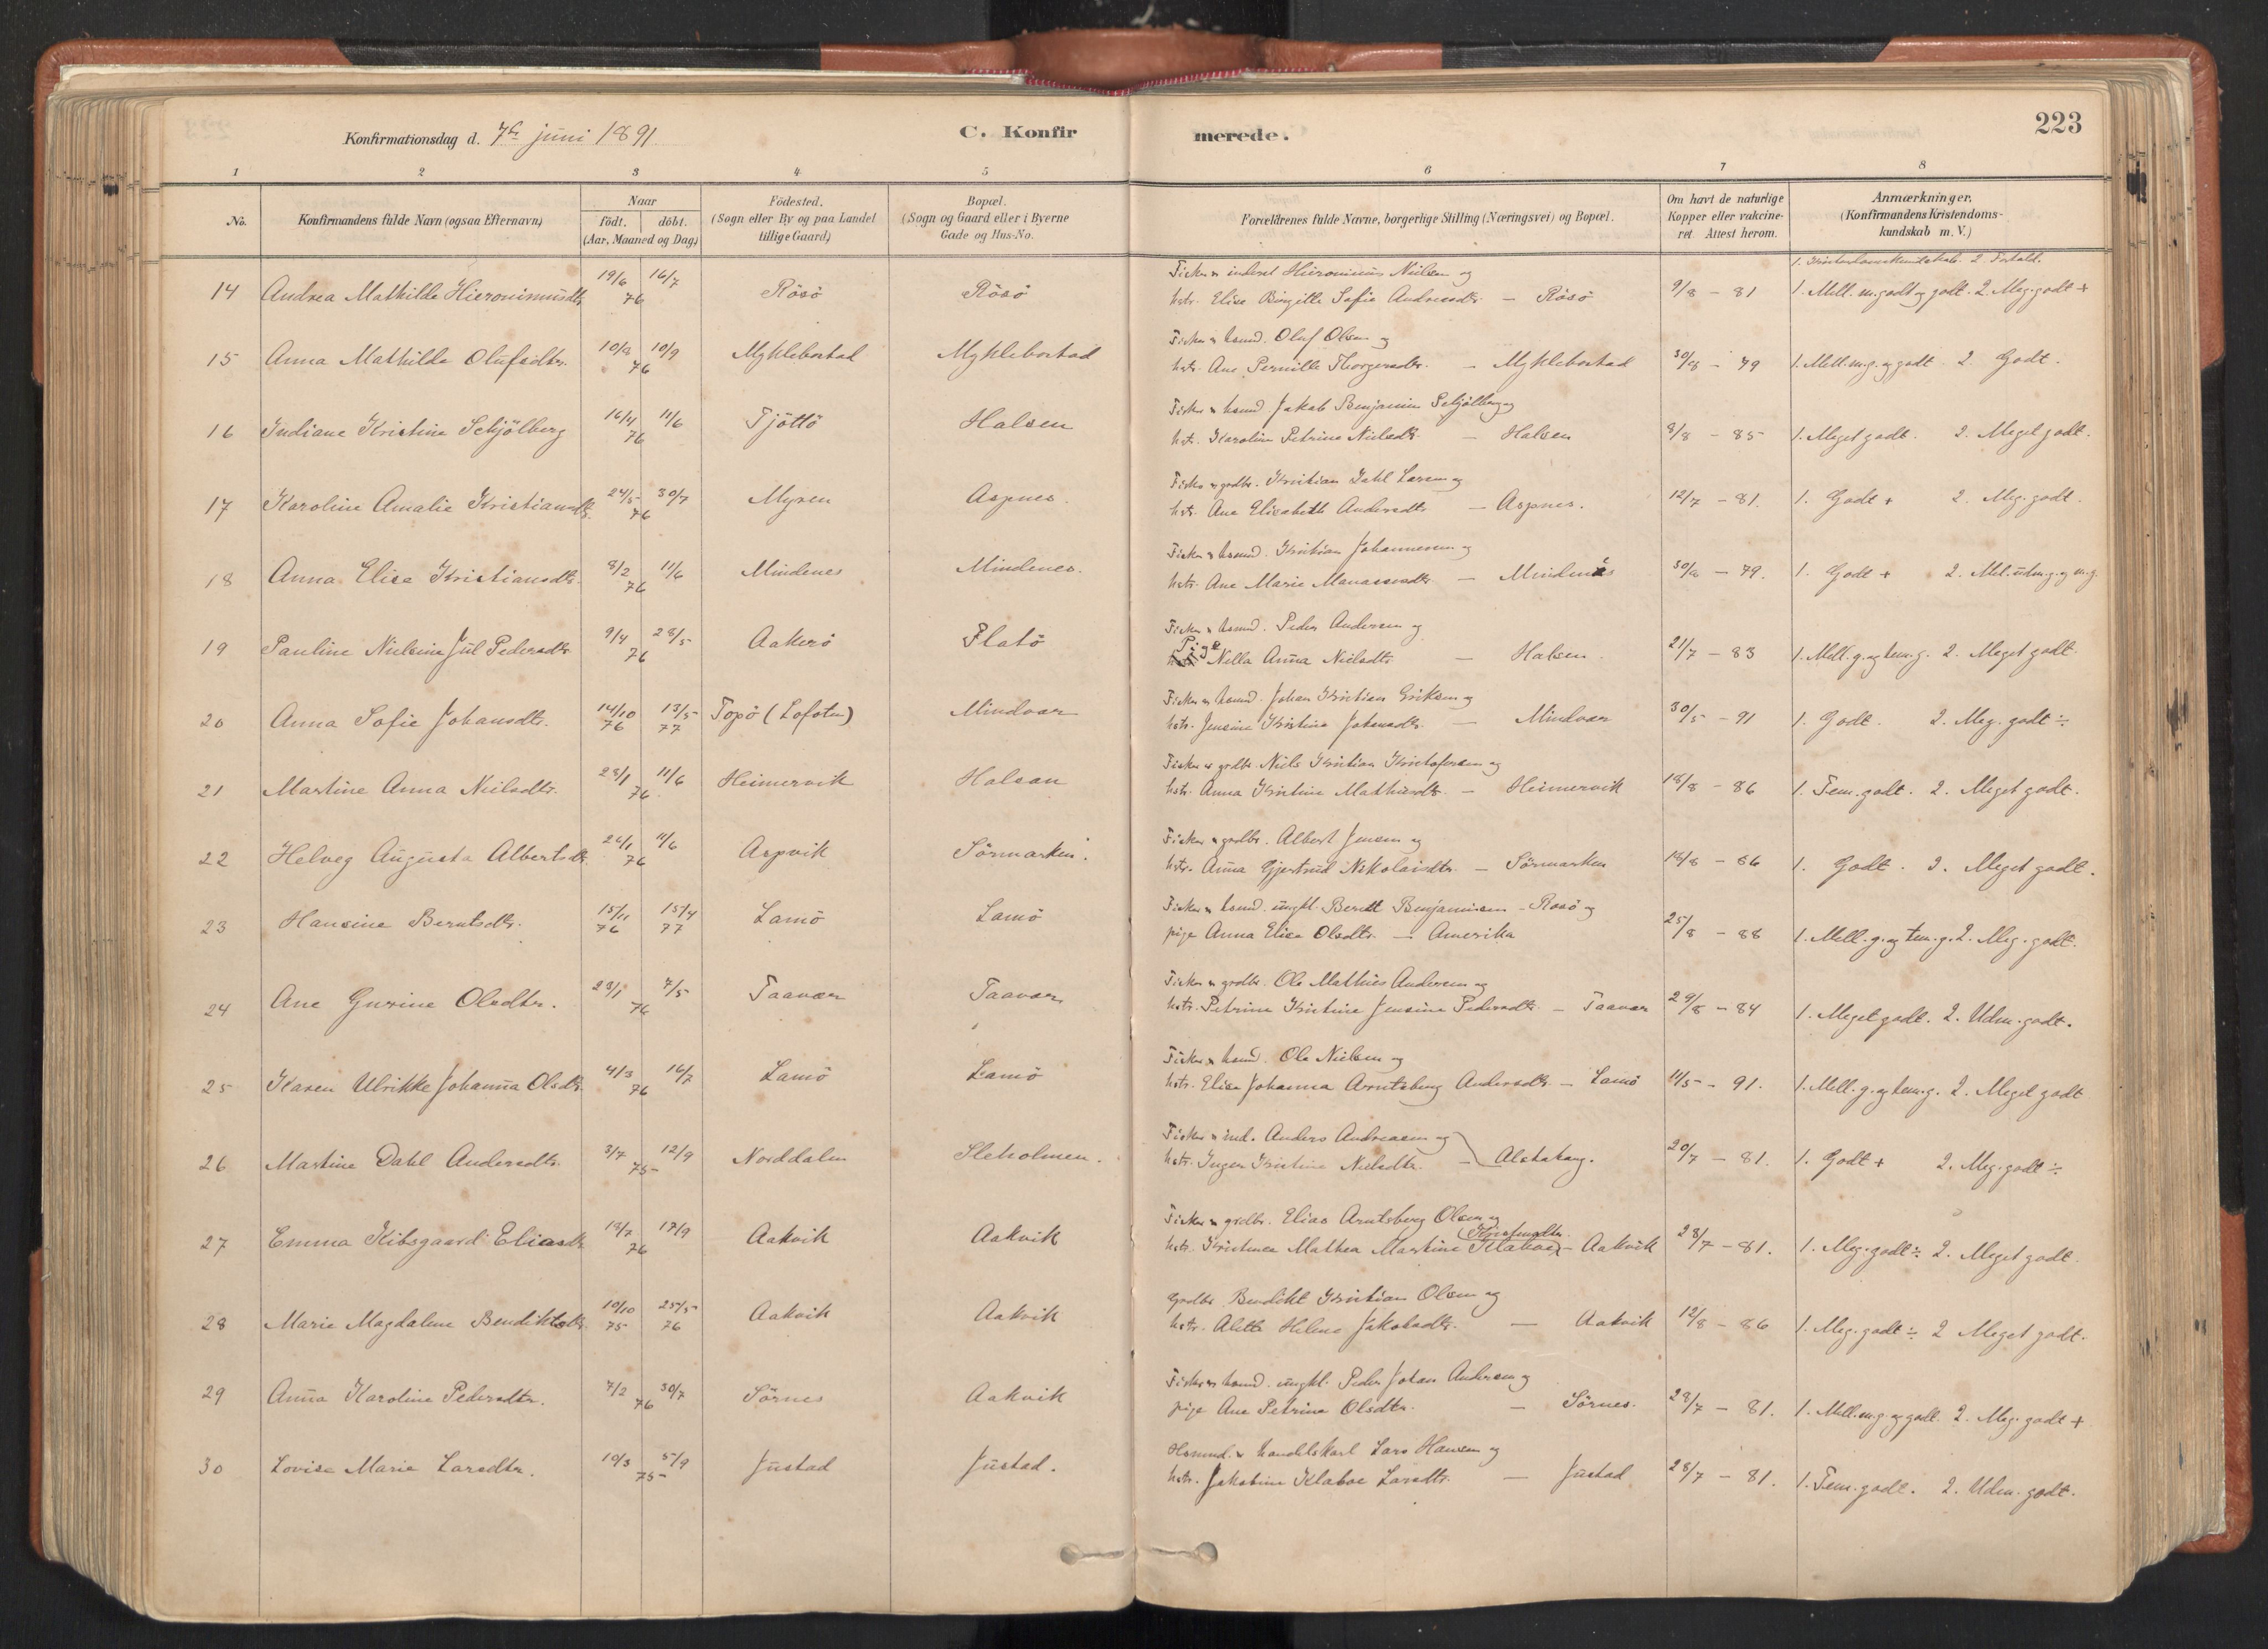 223
Konfirmationsdag d. 7de juni 1891
C. Konfirmerede.
1 2 3 4 5 6 7 8
No.
Konfirmandens fulde Navn (ogsaa Efternavn)
Naar
født. døbt.
(Aar, Maaned og Dag)
Födested.
(Sogn eller By og paa Landet
tillige Gaard)
Bopæl.
(Sogn og Gaard eller i Byerne
Gade og Hus-No.
Forældrenes fulde Navne, borgerlige Stilling (Næringsvei) og Bopæl.
Om havt de naturlige
Kopper eller vakcine-
ret. Attest herom.
Anmærkninger.
(Konfirmandens Kristendoms-
kundskab m. V.)
1. Kristendomskundskab. 2. Forhold.
Fisker & inderst Hieronimus Nielsen og
14 Andrea Mathilde Hieronimusdtr. 19/6 16/7 76 Rösö Rösö hstr. Elise Birgitte Sofie Andreasdtr. — Rösö 9/8 - 81 1. Mell. m. godt og godt. 2. Meg. godt +
Fisker & hsmd. Oluf Olsen og
15 Anna Mathilde Olufsdtr. 10/9 76 Myklebostad Myklebostad hstr. Ane Pernille Thorgersdtr. — Myklebostad 30/8 - 79 1. Mell. m.g. og godt. 2. Godt.
Fisker & hsmd Jakob Benjamin Schjölberg og
16 Indiane Kristine Schjölberg 16/4 11/6 76 Tjöttö Halsen hstr. Karoline Petrine Nielsdtr. — Halsen 8/8 - 85 1. Meget godt. 2. Meget godt.
Fisker & grdbr. Kristian Dahl Larsen og
17 Karoline Amalie Kristiansdtr. 24/5 30/7 76 Myren Aspnes. hstr. Ane Elisabeth Andersdtr. — Aspnes. 12/7 - 81. 1. Godt + 2. Meg. godt.
Fisker & hsmd. Kristian Johannesen og
18 Anna Elise Kristiansdtr. 8/2 11/6 76 Mindenes Mindenes. hstr. Ane Marie Manassesdtr. — Mindenes - 79. 1. Godt + 2. Mel. udm. g. og m.g.
Fisker & hsmd. Peder Andersen og
19 Pauline Nielsine Jul Pedersdtr 9/4 28/5 76 Aakerö Flatö Pige Nella Anna Nielsdtr. — Halsen. 21/7 - 83 1. Mell. g. og tem. g. 2. Meget godt.
Fisker & hsmd. Johan Kristian Eriksen og
20 Anna Sofie Johansdtr. 14/10 76 13/5 77 Topö (Lofoten) Mindvær hstr. Jensine Kristine Johnsdtr. — Mindvær 30/5 - 91 1. Godt. 2. Meg. godt ÷
Fisker & grdbr. Niels Kristian Kristofersen og
21 Martine Anna Nielsdtr. 28/1 11/6 76. Heimervik Halsan hstr. Anna Kristine Mathiasdtr. — Heimervik 18/8 - 86 1. Tem. godt. 2. Meget godt.
Fisker & grdbr. Albert Jensen og
22 Helveg Augusta Albertsdtr. 26/1 11/6 76 Aspvik Sörmarken. hstr. Anna Gjertrud Nikolaisdtr. — Sörmarken 18/8 - 86 1. Godt. 2. Meget godt.
Fisker & hsmd. ungkl. Berett Benjaminsen - Rosö og
23 Hansine Berntsdtr. 15/11 76 15/4 77 Lamö Lamö pige Anna Elise Olsdtr. — Amerika 25/8 - 88 1. Mell. g. og tem. g. 2. Meg. godt.
Fisker & grdbr. Ole Mathias Andersen og
24 Ane Gurine Olsdtr. 23/1 7/5 76 Taavær Taavær hstr. Petrine Kristine Jensine Pedersdtr. — Taavær 29/8 - 84 1. Meget godt. 2. Udm. godt.
Fisker & hsmd. Ole Nielsen og
25 Karen Ulrikke Johanna Olsdtr. 4/3 16/7 76 Lamö Lamö hstr. Elise Johanna Arntsberg Andersdtr. — Lamö 11/5 - 91. 1. Mell. g. og tem. g. 2. Meget godt
Fisker & ind. Anders Andreasen og
26 Martine Dahl Andersdtr. 3/7 12/9 75 Norddalen Sleholmen. hstr. Inger Kristine Nielsdtr. — Alstahaug. 20/7 - 81. 1. Godt + 2. Meg. godt ÷
Fisker & grdbr. Elias Arntsberg Olsen og
27 Emma Kibsgaard Eliasdtr 13/7 17/9 76 Aakvik Aakvik hstr. Kristence Mathea Martine Klaboe Kristensdtr. - Aakvik 28/7 - 81. 1. Meg. godt ÷ 2. Meget godt.
Grdbr. Bendikt Kristian Olsen og
28 Marie Magdalene Bendiktsdtr. 10/10 75 25/5 76 Aakvik Aakvik hstr. Alette Helene Jakobsdtr. — Aakvik 12/8 - 86 1. Meg. godt ÷ 2 Meget godt.
Fisker & hsmd. ungkl. Peder Johan Andersen og
29 Anna Karoline Pedersdtr. 7/2 30/7 76 Sörnes Aakvik pige Ane Petrine Olsdtr. — Sörnes. 28/7 - 81. 1. Mell. m.g. og godt. 2. Meg. godt +
Hsmd. & handelskarl Lars Hansen og
30 Lovise Marie Larsdtr. 10/3 5/9 75 Justad Justad. hstr. Jakobine Klaboe Larsdtr. — Justad 28/7 - 81. 1. Tem. godt. 2. Udm. godt.